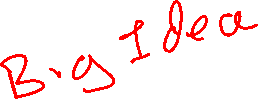 Big Idea